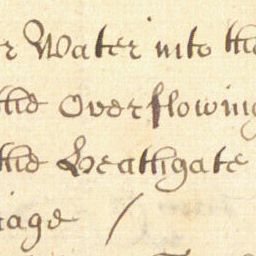 r Water into the
the Overflowing
the Heathgate
iage /